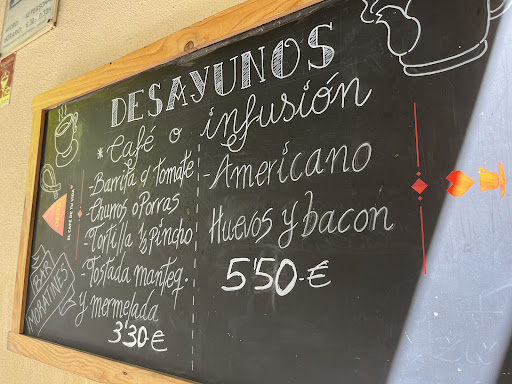 DESAYUNOS
* Café o infusión
- Barrita c/ Tomate
- Churros o Porras
- Tortilla ½ pincho
- Tostada manteq.
y mermelada
3'30-€
- Americano
Huevos y bacon
5'50-€
EL CAFÉ DE TU VIDA
BAR
MORATINES